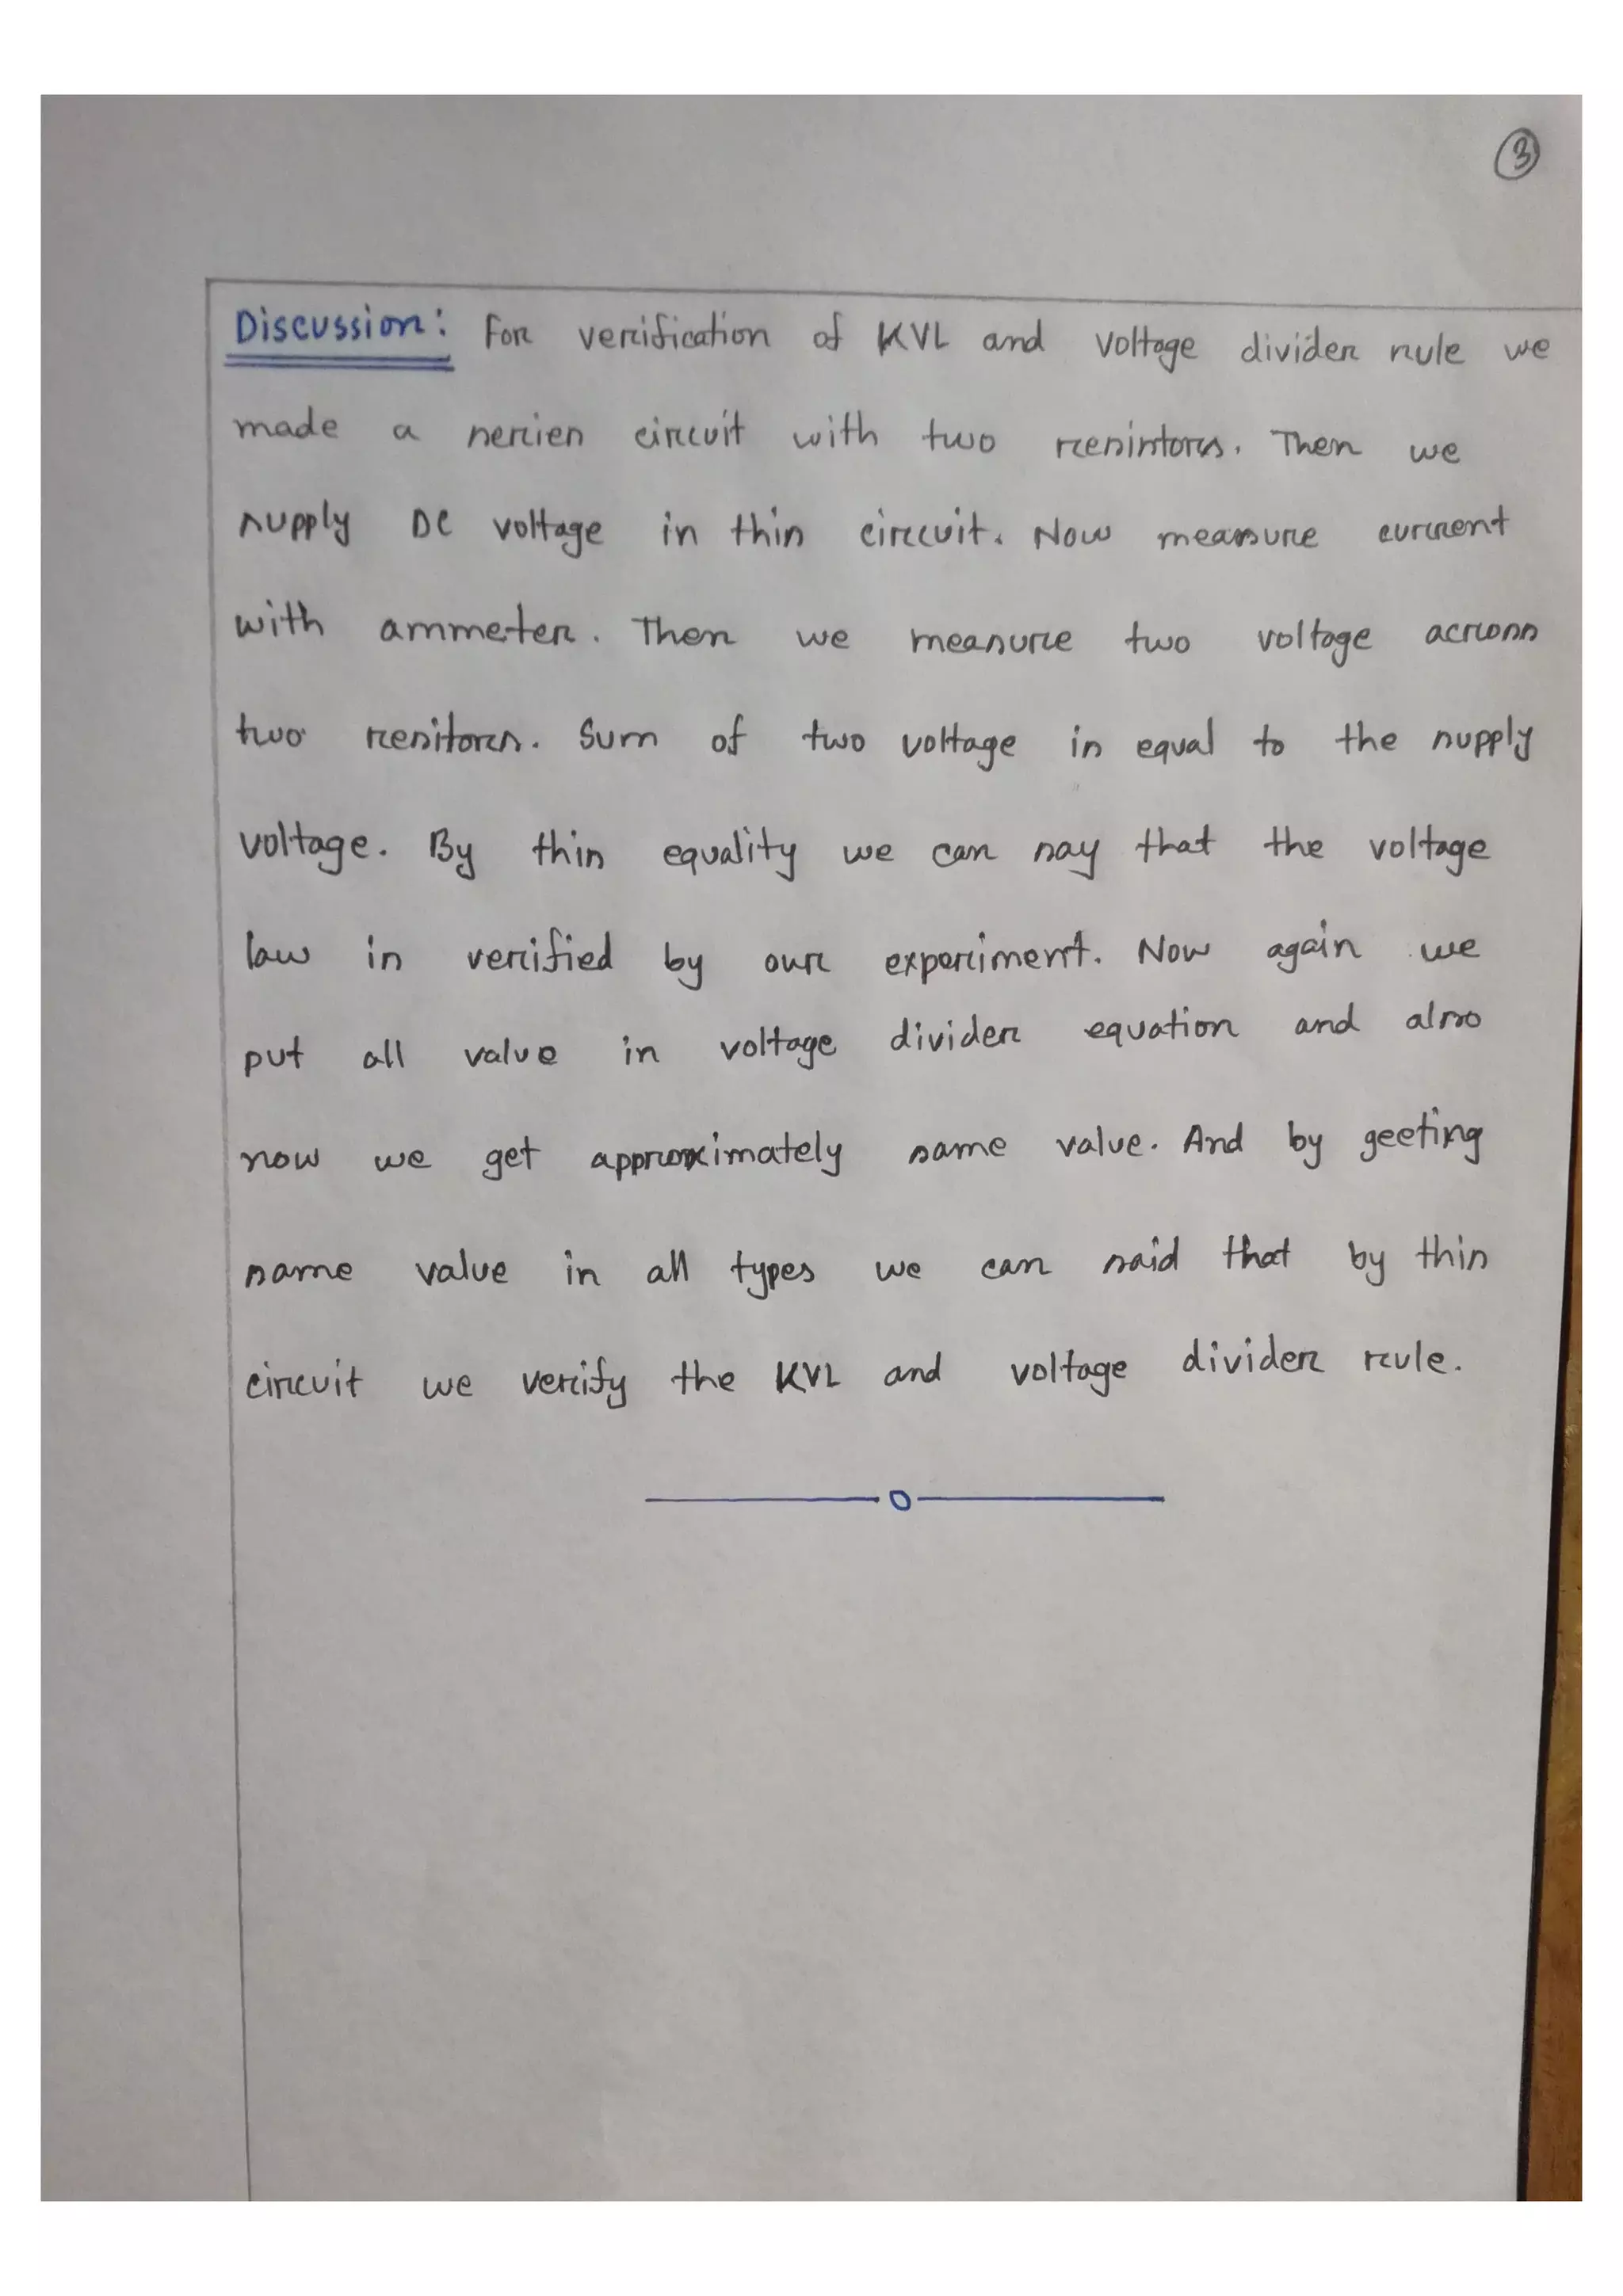 3
Discussion: For verification of KVL and voltage divider rule we
made a series circuit with two resistors. Then we
supply DC voltage in this circuit. Now measure current
with ammeter. Then we measure two voltage across
two resitors. Sum of two voltage is equal to the supply
voltage. By this equality we can say that the voltage
law is verified by our experiment. Now again we
put all value in voltage divider equation and also
now we get approximately same value. And by geeting
same value in all types we can said that by this
circuit we verify the KVL and voltage divider rule.